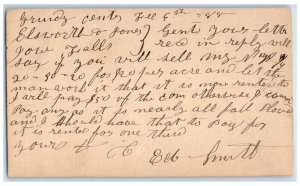 Grundy center Feb 6th - 88
Elsworth & Jones Gents your letter
Iowa Falls recd in reply will
say if you will sell my
20 - 30 - 20 for per acre and let the
man work it that it is now rented to
I will pay of the com otherwise I cant
Pay any as it is nearly all fall Plowed
and I should have that to Pay for
it is rented for one third
yours
Smith